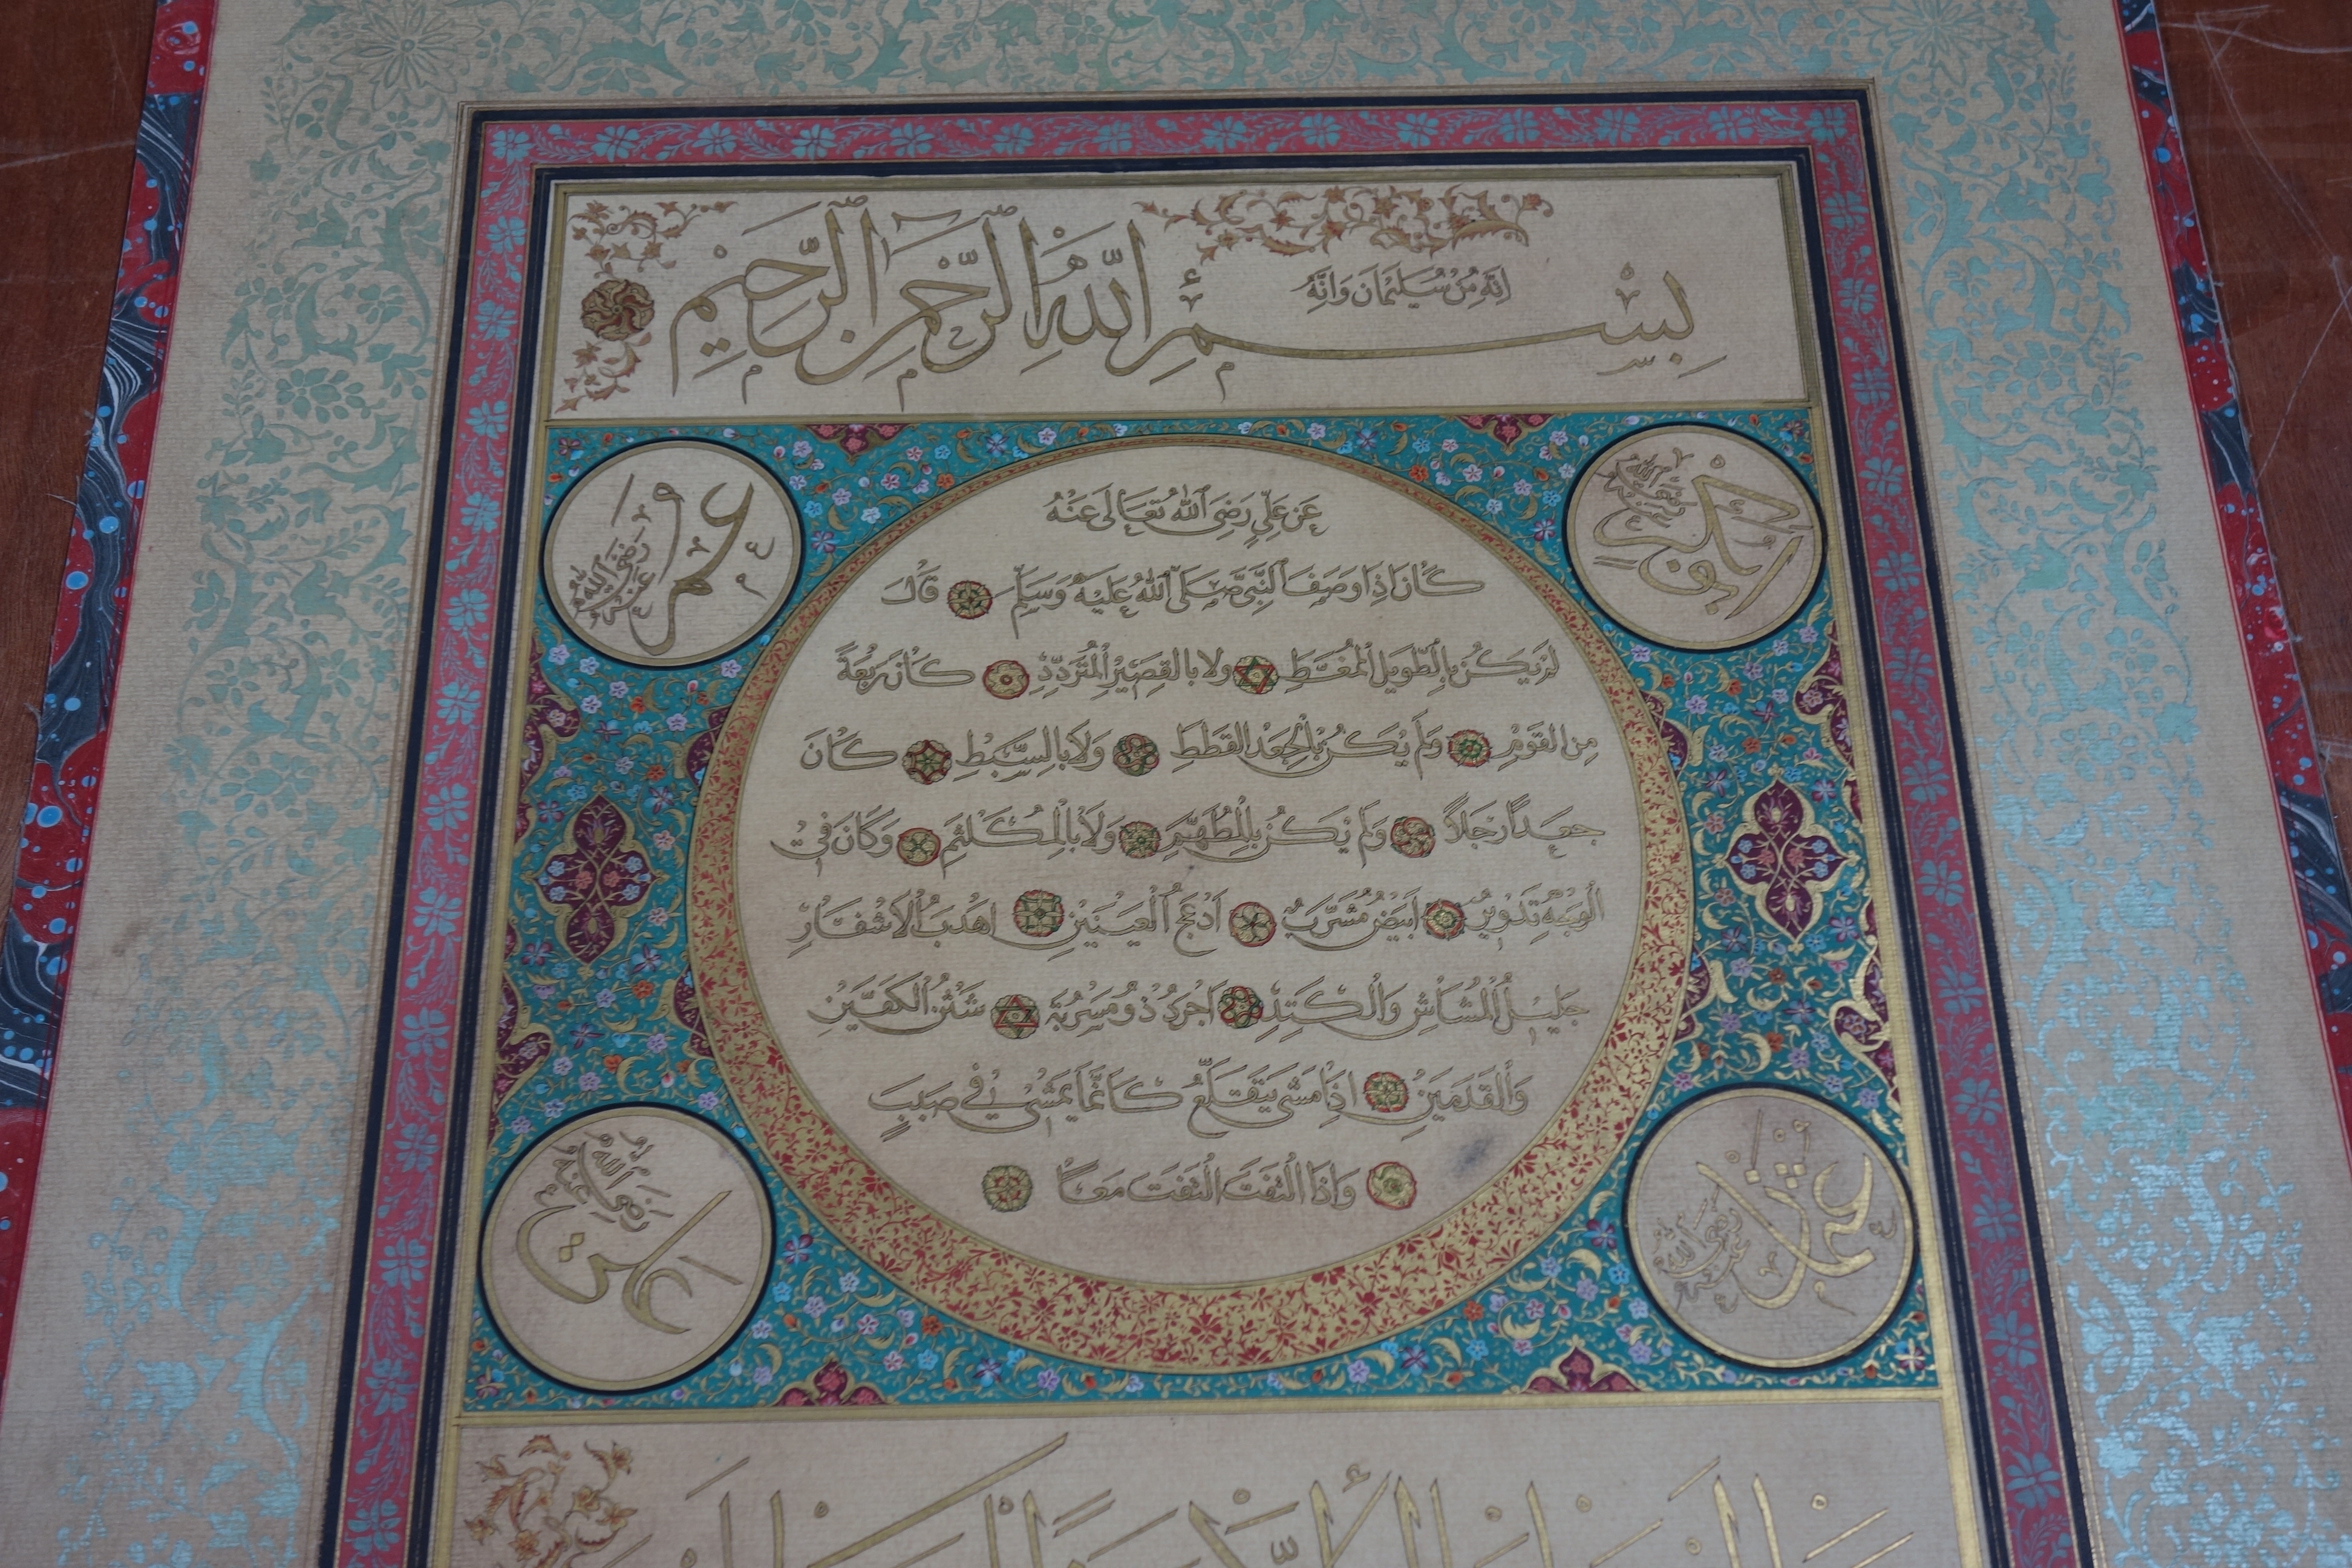 انه من سليمان وانه
بسم الله الرحمن الرحيم
ابو بكر رضي الله عنه
عمر رضي الله عنه
عن علي رضي الله تعالى عنه
كان اذا وصف النبي صلى الله عليه وسلم قال
لم يكن بالطويل الممغط ولا بالقصير المتردد كان ربعة
من القوم ولم يكن بالجعد القطط ولا بالسبط كان
جعدا رجلا ولم يكن بالمطهم ولا بالمكلثم وكان في
الوجه تدوير ابيض مشرب ادعج العينين اهدب الاشفار
جليل المشاش والكتد اجرد ذو مسربة شثن الكفين
والقدمين اذا مشى يتقلع كانما يمشي في صبب
واذا التفت التفت معا
عثمان رضي الله عنه
علي رضي الله عنه